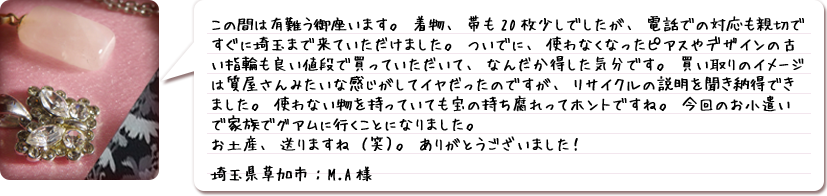 この間は有難う御座います。 着物、 帯も20枚少しでしたが、 電話での対応も親切で
すぐに埼玉まで来ていただけました。 ついでに、 使わなくなったピアスやデザインの古
い指輪も良い値段で買っていただいて、 なんだか得した気分です。 買い取りのイメージ
は質屋さんみたいな感じがしてイヤだったのですが、 リサイクルの説明を聞き納得でき
ました。 使わない物を持っていても宝の持ち腐れってホントですね。 今回のお小遣い
で家族でグアムに行くことになりました。
お土産、 送りますね (笑)。 ありがとうございました!
埼玉県草加市 : M.A 様